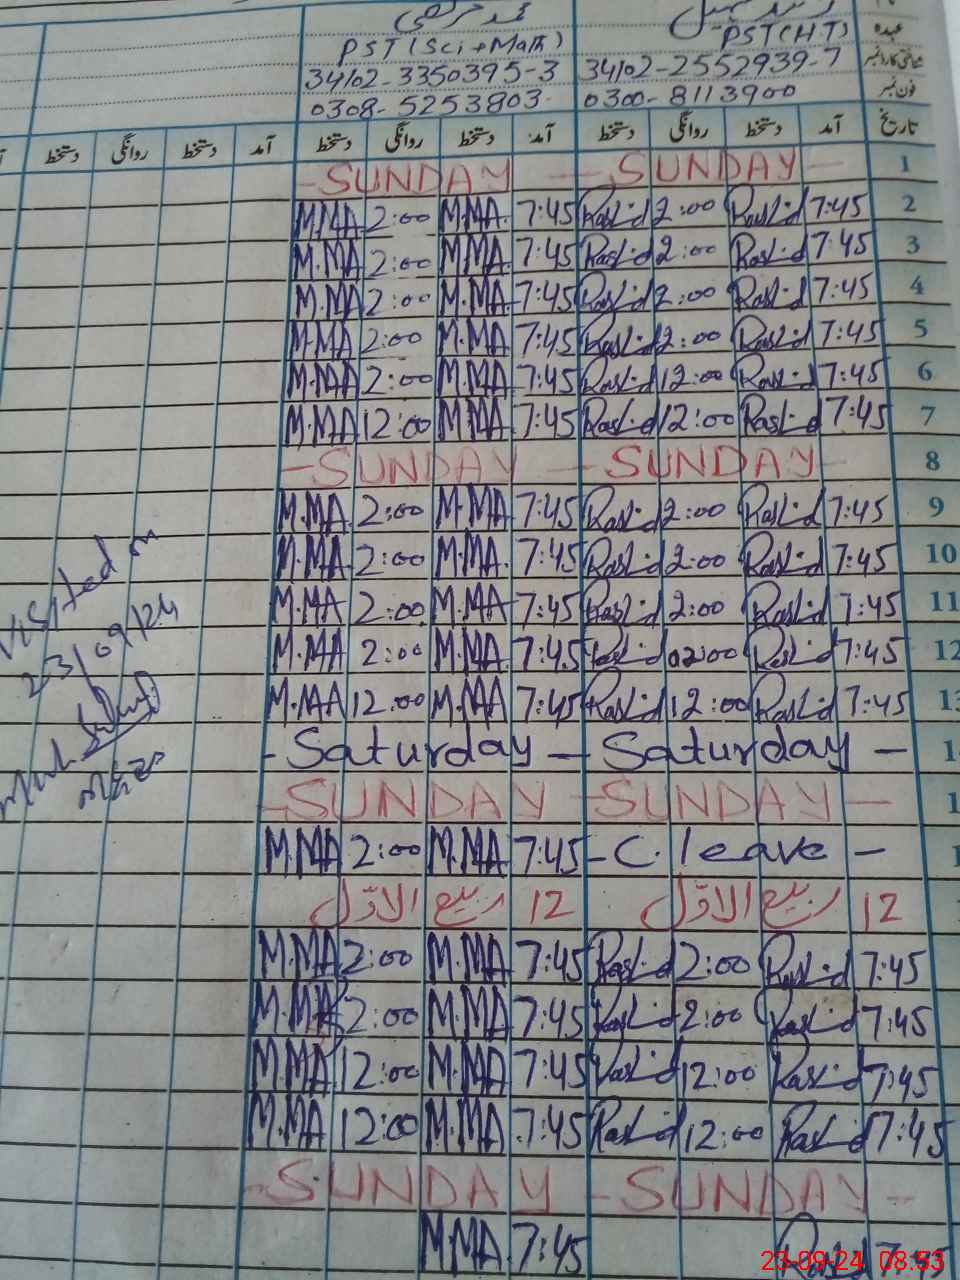 عہدہ PST(HT) PST(Sci+Math)
شناختی کارڈ نمبر 34102-2552939-7 34102-3350395-3
فون نمبر 0300-8113900 0308-5253803
تاریخ آمد دستخط روانگی دستخط آمد دستخط روانگی دستخط آمد دستخط روانگی دستخط
1 - SUNDAY - - SUNDAY
2 7:45 Rashid 2:00 Rashid 7:45 M.MA 2:00 M.MA
3 7:45 Rashid 2:00 Rashid 7:45 M.MA 2:00 M.MA
4 7:45 Rashid 2:00 Rashid 7:45 M.MA 2:00 M.MA
5 7:45 Rashid 2:00 Rashid 7:45 M.MA 2:00 M.MA
6 7:45 Rashid 12:00 Rashid 7:45 M.MA 2:00 M.MA
7 7:45 Rashid 12:00 Rashid 7:45 M.MA 12:00 M.MA
8 - SUNDAY - - SUNDAY
9 7:45 Rashid 2:00 Rashid 7:45 M.MA 2:00 M.MA
10 7:45 Rashid 2:00 Rashid 7:45 M.MA 2:00 M.MA
11 7:45 Rashid 2:00 Rashid 7:45 M.MA 2:00 M.MA
12 7:45 Rashid 02:00 Rashid 7:45 M.MA 2:00 M.MA
13 7:45 Rashid 12:00 Rashid 7:45 M.MA 12:00 M.MA
- Saturday - Saturday -
- SUNDAY - SUNDAY -
- C. leave - 7:45 M.MA 2:00 M.MA
12 ربیع الاوّل 12 ربیع الاوّل
7:45 Rashid 2:00 Rashid 7:45 M.MA 2:00 M.MA
7:45 Rashid 2:00 Rashid 7:45 M.MA 2:00 M.MA
7:45 Rashid 12:00 Rashid 7:45 M.MA 12:00 M.MA
7:45 Rashid 12:00 Rashid 7:45 M.MA 12:00 M.MA
- SUNDAY - SUNDAY -
7:45 Rashid 7:45 M.MA
Visited on
23/09/24
23-09-24 08:53